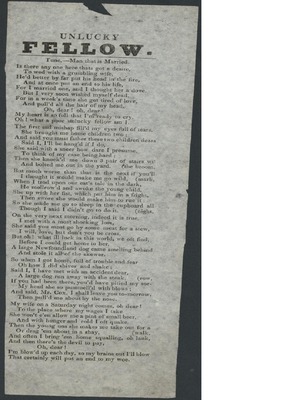 UNLUCKY
FELLOW.
Tune.—Man that is Married.
Is there any one here that's got a dearo,
To wed with a grumbling wife,
He'd better by far put his head in the fire,
And at once put an end to his life,
For I married one, and I thought her a dove
But I very soon wished myself dead,
For in a week's time she got tired of love,
And pull'd all the hair of my head.
Oh, dear! oh, dear!
My heart is so full that I'm ready to cry
Oh! what a poor unlucky fellow am I
The first sad mishap fill'd my eyes full of tears
She brought me home children two
And said you must father these two children dears,
Said I, I'll be hang'd if I do,
She said with a sneer how dare I presume,
To think of my case being hard
Then she knock'd me down 3 pair of stairs
And locked me out in the yard.
But much worse than that is the next if you'll
I thought it would make me go wild,
When I trod upon one cat's tail in the dark,
He and the young child,
Then swore she would make him to rue it
So she made me go to sleep in the cupboard all
Though I said I didn't go to do it.
On the very next morning, indeed it is true,
I met with a most shocking loss,
She said you must go fetch some meat for a stew,
I will, love, but don't you be cross.
But oh! what ill luck in this world, we oft find,
Before I could get home to her,
A large Newfoundland dog came smelling behind
And stole it all of the skewer.
So when I got home, full of trouble and fear
Oh how I did shiver and shake;
Said I, I have met with an accident dear,
A large dog run away with the steak,
If you had been there, you'd have pitied my
My head she so powerful'd with blows;
And said, Mr. Gux, I shall leave you to-morrow,
Then pull'd me about by the nose.
My wife on a Saturday night comes, oh dear!
To the place where my wages I take
She won't e'en allow me a pint of small beer,
And with hunger and cold I oft quake.
Then the young one she makes me take out for a
Or drag 'em about in a shay,
And often I bring 'em home squalling, oh lauk,
And then there's the devil to pay,
Oh, dear!
I'm blow'd up each day, so my brains out I'll blow
That certainly will put an end to my woe.